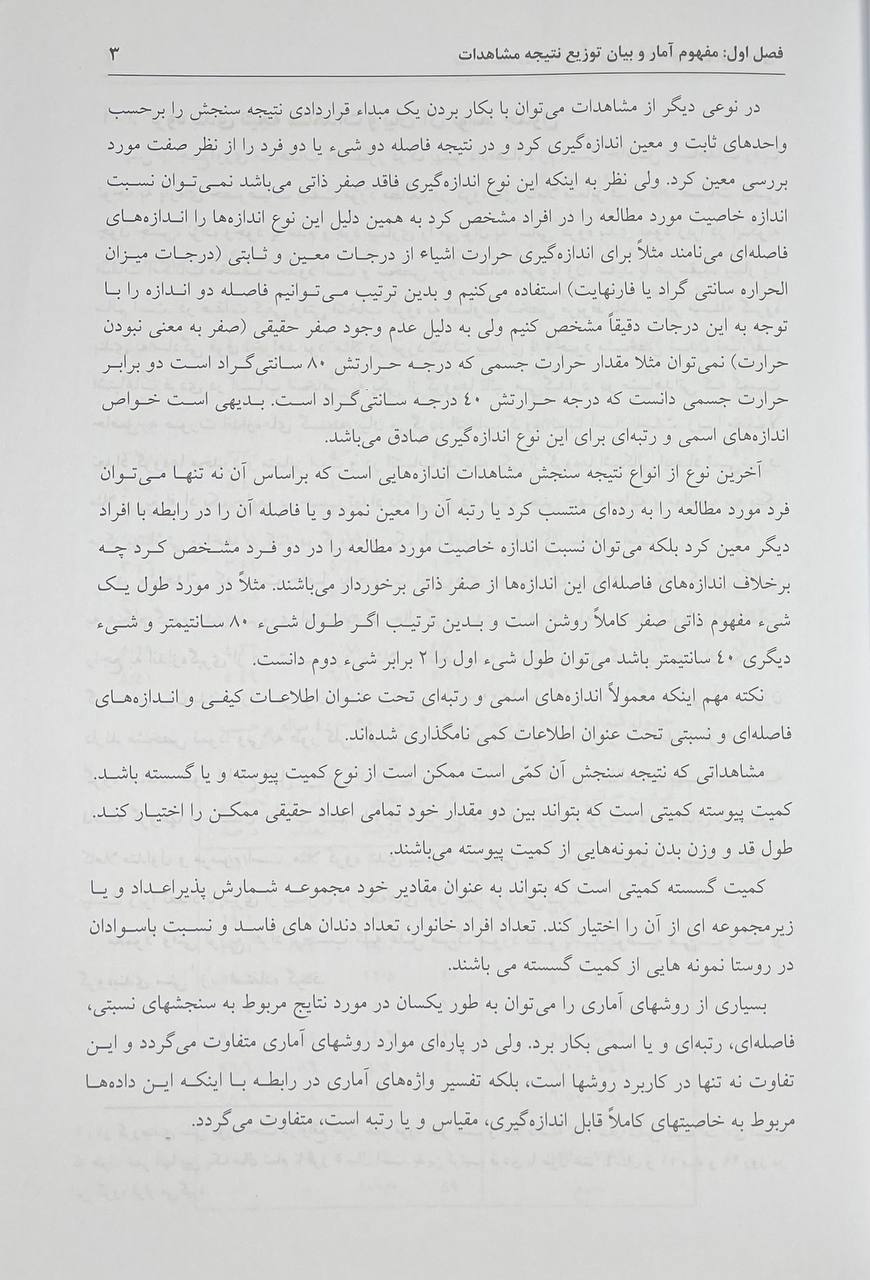 فصل اول: مفهوم آمار و بیان توزیع نتیجه مشاهدات ۳
در نوعی دیگر از مشاهدات می‌توان با بکار بردن یک مبداء قراردادی نتیجه سنجش را برحسب
واحدهای ثابت و معین اندازه‌گیری کرد و در نتیجه فاصله دو شیء یا دو فرد را از نظر صفت مورد
بررسی معین کرد. ولی نظر به اینکه این نوع اندازه‌گیری فاقد صفر ذاتی می‌باشد نمی‌توان نسبت
اندازه خاصیت مورد مطالعه را در افراد مشخص کرد به همین دلیل این نوع اندازه‌ها را اندازه‌های
فاصله‌ای می‌نامند مثلاً برای اندازه‌گیری حرارت اشیاء از درجات معین و ثابتی (درجات میزان
الحراره سانتی گراد یا فارنهایت) استفاده می‌کنیم و بدین ترتیب می‌توانیم فاصله دو اندازه را با
توجه به این درجات دقیقاً مشخص کنیم ولی به دلیل عدم وجود صفر حقیقی (صفر به معنی نبودن
حرارت) نمی‌توان مثلا مقدار حرارت جسمی که درجه حرارتش ۸۰ سانتی‌گراد است دو برابر
حرارت جسمی دانست که درجه حرارتش ۴۰ درجه سانتی‌گراد است. بدیهی است خواص
اندازه‌های اسمی و رتبه‌ای برای این نوع اندازه‌گیری صادق می‌باشد.
آخرین نوع از انواع نتیجه سنجش مشاهدات اندازه‌هایی است که براساس آن نه تنها می‌توان
فرد مورد مطالعه را به رده‌ای منتسب کرد یا رتبه آن را معین نمود و یا فاصله آن را در رابطه با افراد
دیگر معین کرد بلکه می‌توان نسبت اندازه خاصیت مورد مطالعه را در دو فرد مشخص کرد چه
برخلاف اندازه‌های فاصله‌ای این اندازه‌ها از صفر ذاتی برخوردار می‌باشند. مثلاً در مورد طول یک
شیء مفهوم ذاتی صفر کاملاً روشن است و بدین ترتیب اگر طول شیء ۸۰ سانتیمتر و شیء
دیگری ۴۰ سانتیمتر باشد می‌توان طول شیء اول را ۲ برابر شیء دوم دانست.
نکته مهم اینکه معمولاً اندازه‌های اسمی و رتبه‌ای تحت عنوان اطلاعات کیفی و اندازه‌های
فاصله‌ای و نسبتی تحت عنوان اطلاعات کمی نامگذاری شده‌اند.
مشاهداتی که نتیجه سنجش آن کمّی است ممکن است از نوع کمیت پیوسته و یا گسسته باشد.
کمیت پیوسته کمیتی است که بتواند بین دو مقدار خود تمامی اعداد حقیقی ممکن را اختیار کند.
طول قد و وزن بدن نمونه‌هایی از کمیت پیوسته می‌باشند.
کمیت گسسته کمیتی است که بتواند به عنوان مقادیر خود مجموعه شمارش پذیراعداد و یا
زیرمجموعه ای از آن را اختیار کند. تعداد افراد خانوار، تعداد دندان های فاسد و نسبت باسوادان
در روستا نمونه هایی از کمیت گسسته می باشند.
بسیاری از روشهای آماری را می‌توان به طور یکسان در مورد نتایج مربوط به سنجشهای نسبتی،
فاصله‌ای، رتبه‌ای و یا اسمی بکار برد. ولی در پاره‌ای موارد روشهای آماری متفاوت می‌گردد و این
تفاوت نه تنها در کاربرد روشها است، بلکه تفسیر واژه‌های آماری در رابطه با اینکه این داده‌ها
مربوط به خاصیتهای کاملاً قابل اندازه‌گیری، مقیاس و یا رتبه است، متفاوت می‌گردد.